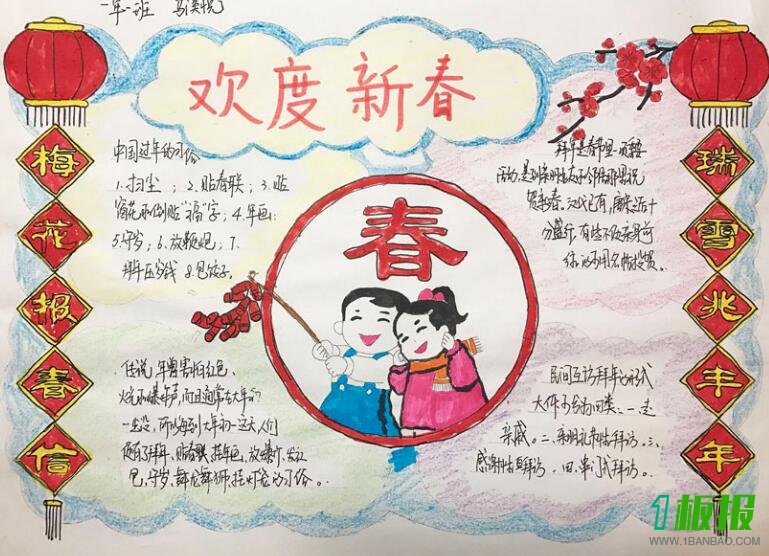 一年一班
欢度新春
梅花报春信
瑞雪兆丰年
春
中国过年的习俗
1.扫尘；2.贴春联；3.贴
窗花和倒贴“福”字；4.年画；
5.守岁；6.放鞭炮；7.
拜年压岁钱 8.包饺子。
传说，年兽害怕红色、
火光和爆炸声，而且通常在大年初
一出没，所以每到大年初一这天，人们
便有了拜年、贴春联、挂年画、放爆竹、发红
包、守岁、舞龙舞狮、挂灯笼的习俗。
拜年是春节里
贺新春。
民间互访拜年的形式
大体
四类：一、走
亲戚。二、
礼节性拜访。三、
感谢性拜访。四、串门式拜访。
1板报
WWW.1BANBAO.COM